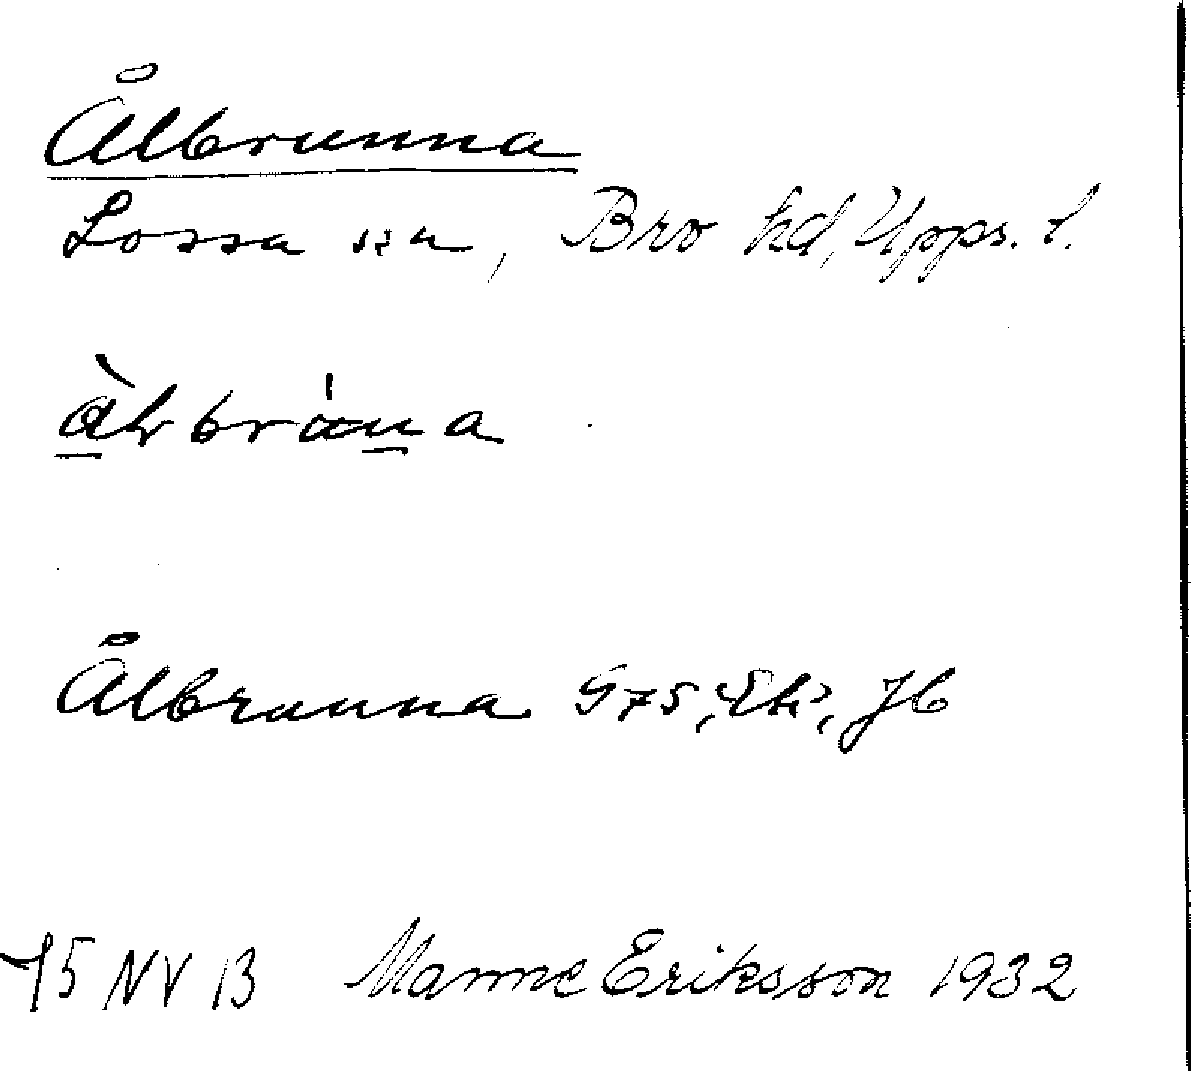 Ålbrunna
Lossa sn, Bro hd, Upps. l.
Ålbrunna G75, Ek, Jb
75 NV B Manne Eriksson 1932